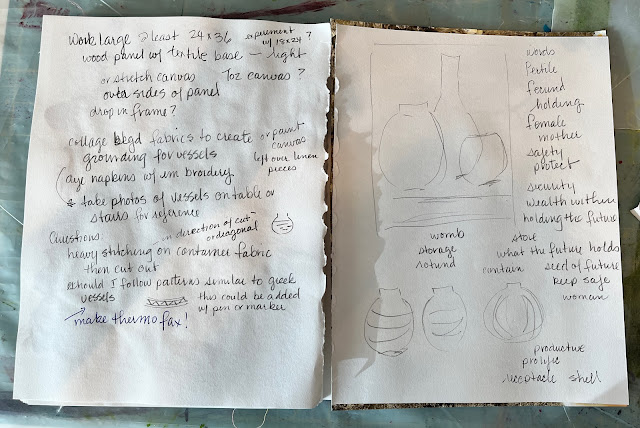 Work large @ least 24x36 experiment
w/ 18x24?
wood panel w/ textile base - light
or stretch canvas 7oz canvas?
over sides of panel
drop in frame?
collage bkgd fabrics to create or paint
canvas
grounding for vessels
left over linen
pieces
(dye napkins w/ embroidery
& take photos of vessels on table or
stairs for reference
Questions:
in direction of cut-
or diagonal
heavy stitching on container fabric
then cut out
should I follow patterns similar to greek
vessels
this could be added
w/ pen or marker
make thermofax!
words
fertile
fecund
holding
female
mother
safety
protect
security
wealth within
holding the future
womb
store
storage
what the future holds
rotund
contain
seed of future
keep safe
woman
productive
prolific
receptacle shell